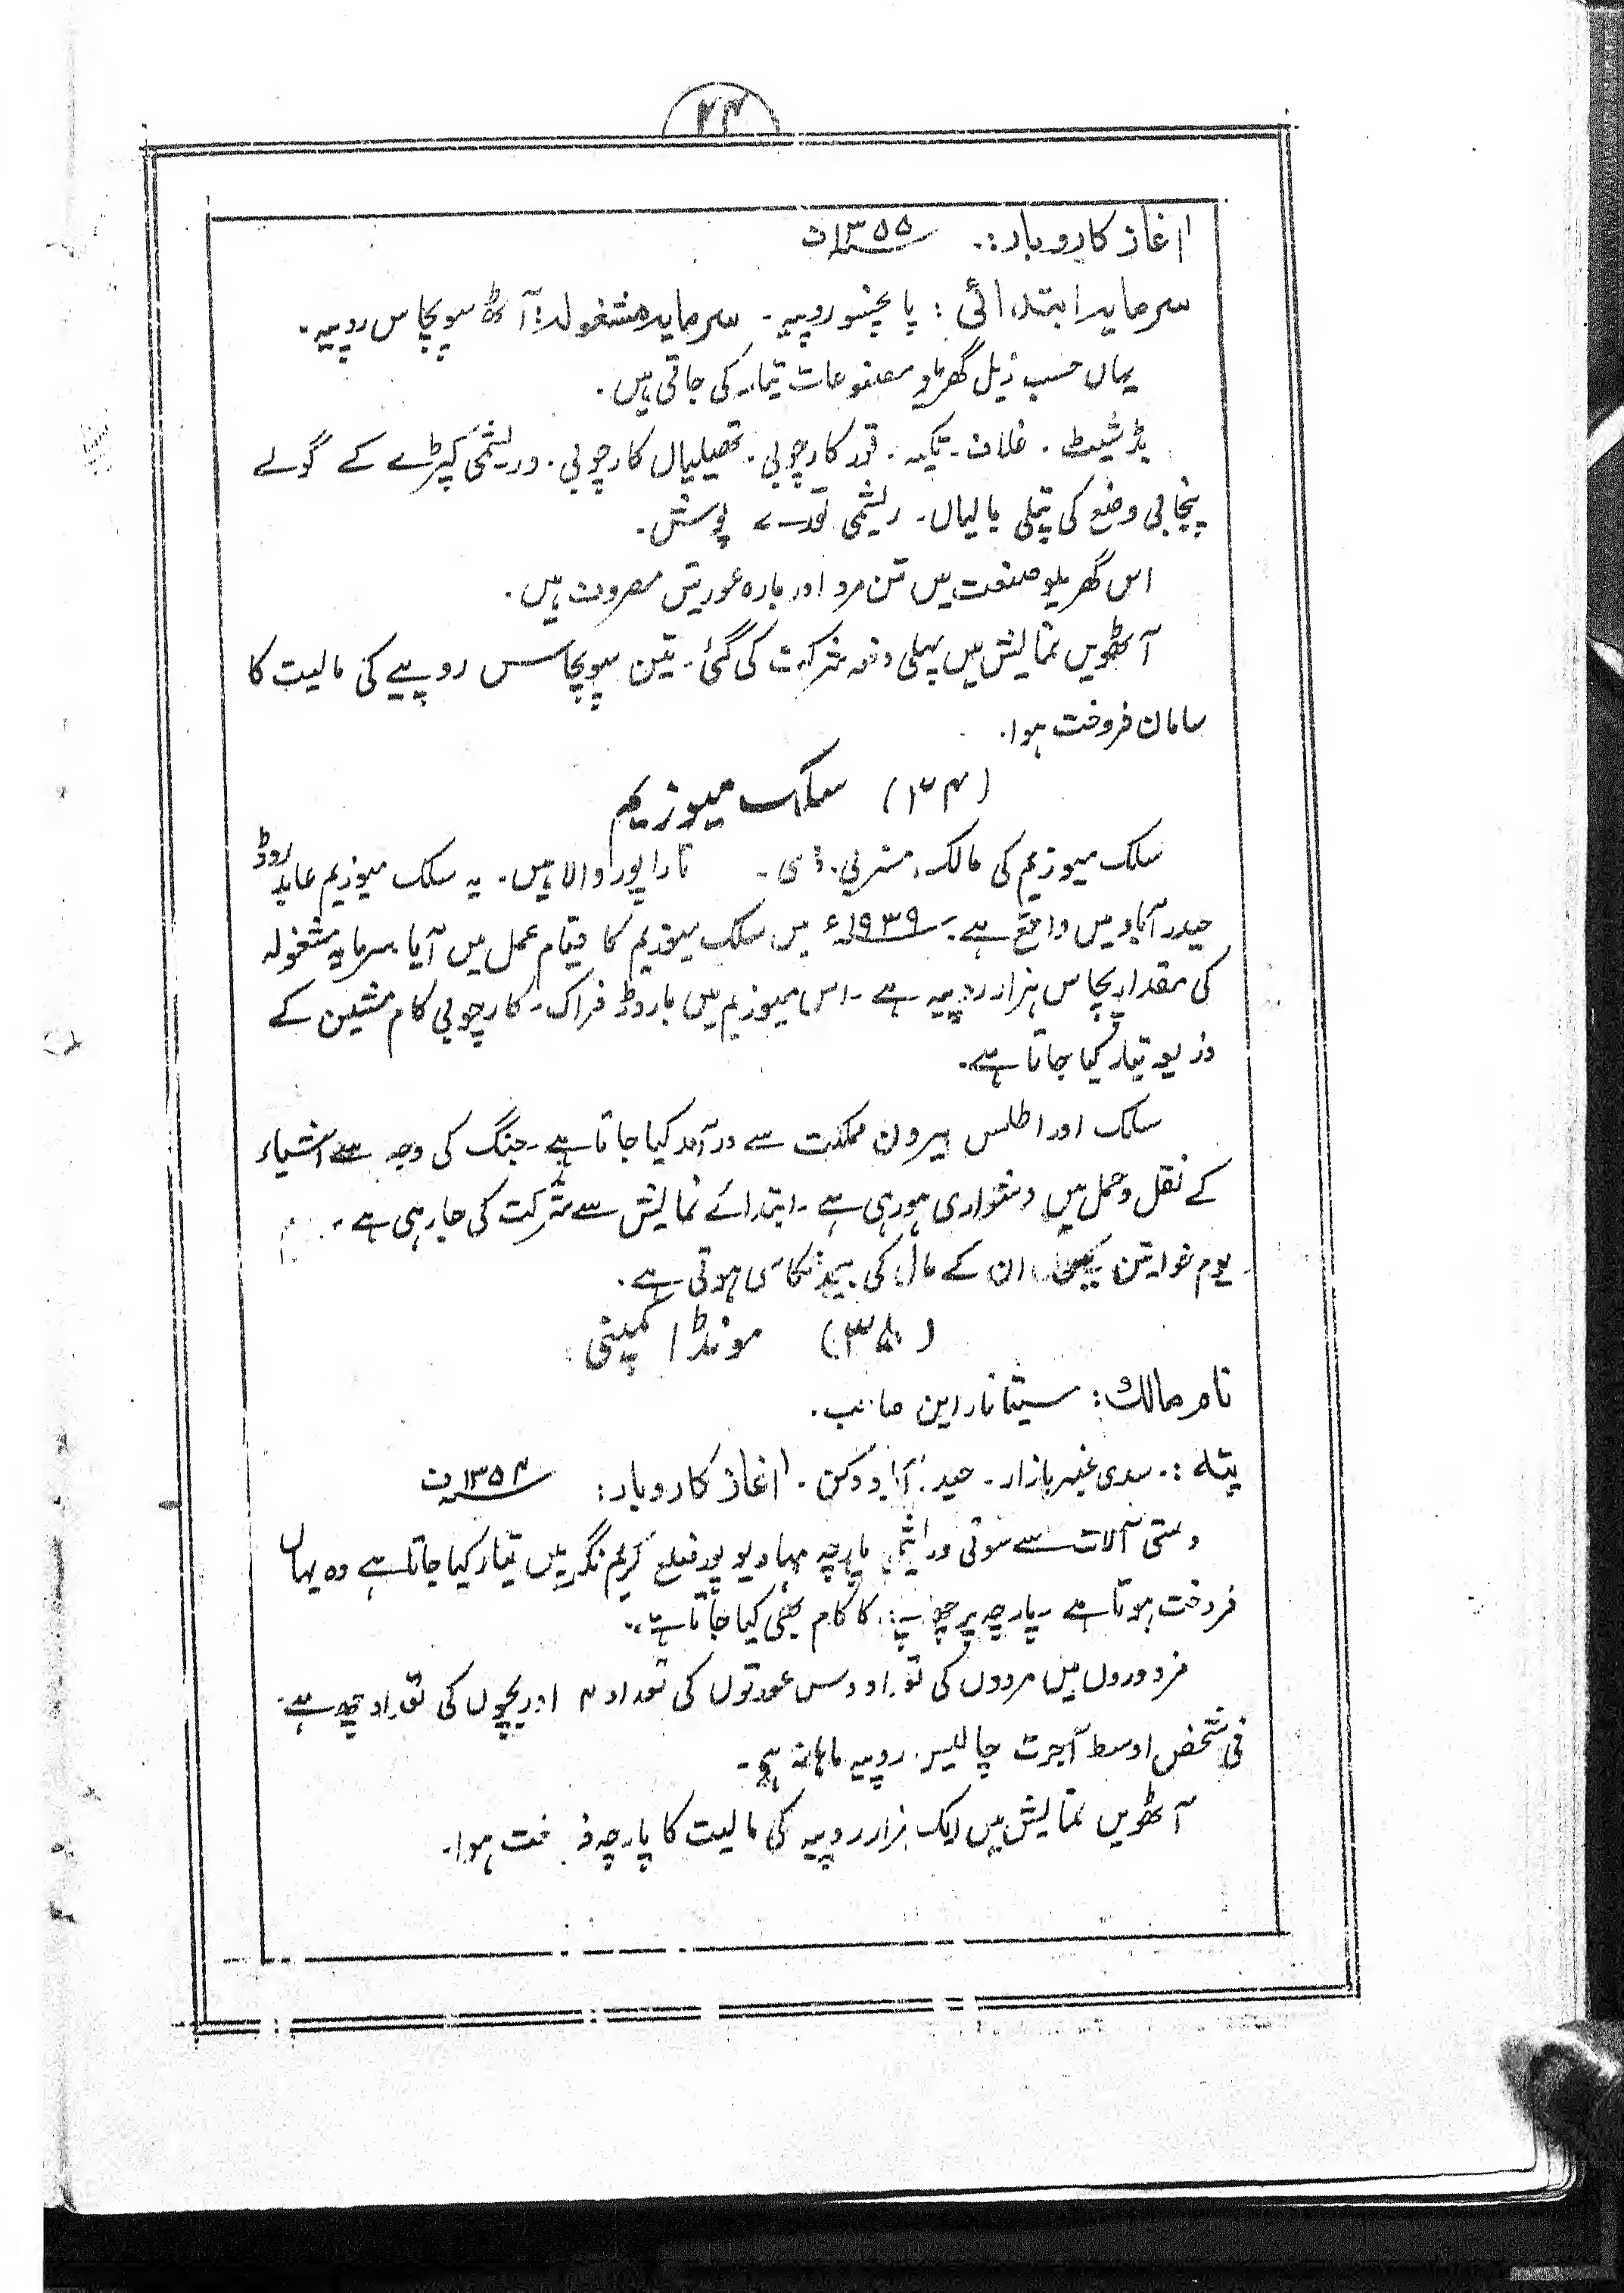 ۲۴
آغاز کاروبار:۔ ۱۳۵۵ف
سرمایہ ابتدائی : پانچسو روپیہ ۔ سرمایہ مشغولہ: آٹھ سو پچاس روپیہ ۔
یہاں حسب ذیل گھریلو مصنوعات تیار کی جاتی ہیں ۔
بڈشیٹ ۔ غلاف ۔ تکیہ ۔ کارچوبی ۔ تھیلیاں کارچوبی ۔ وریشمی کپڑے کے گولے
پنجابی وضع کی پتلی بالیاں ۔ ریشمی پوش ۔
اس گھریلو صنعت میں تین مرد اور بارہ عورتیں مصروف ہیں ۔
آٹھویں نمایش میں پہلی دفعہ شرکت کی گئی ۔ تین سو پچاس روپیے کی مالیت کا
سامان فروخت ہوا ۔
(۳۴) سلک میوزیم
سلک میوزیم کی مالک مسز بی ۔ ڈی ۔ تارا پور والا ہیں ۔ یہ سلک میوزیم عابد روڈ
حیدرآباد میں واقع ہے ۔ ۱۹۳۹ء میں سلک میوزیم کا قیام عمل میں آیا ۔ سرمایہ مشغولہ
کی مقدار پچاس ہزار روپیہ ہے ۔ اس میوزیم میں بارڈڈ فراک ۔ کارچوبی کام مشین کے
ذریعہ تیار کیا جاتا ہے ۔
سلک اور اطلس بیرون مملکت سے درآمد کیا جاتا ہے ۔ جنگ کی وجہ سے اشیاء
کے نقل و حمل میں دشواری ہو رہی ہے ۔ ابتدائے نمایش سے شرکت کی جا رہی ہے ۔
یوم خواتین ان کے مال کی بیحد نکاسی ہوتی ہے ۔
(۳۵) مونڈا کمپنی
نام مالک : سیتا ناراین صاحب ۔
پتہ :۔ سدی عنبر بازار ۔ حیدرآباد دکن ۔ آغاز کاروبار : ۱۳۵۴ف
دستی آلات سے سوتی و ریشمی پارچہ مہادیو پور ضلع کریم نگر میں تیار کیا جاتا ہے وہ یہاں
فروخت ہوتا ہے ۔ پارچہ پر کا کام بھی کیا جاتا ہے ۔
مزدوروں میں مردوں کی تعداد دس عورتوں کی تعداد ۴ اور بچوں کی تعداد چھ ہے ۔
فی شخص اوسط اجرت چالیس روپیہ ماہانہ ہے ۔
آٹھویں نمایش میں ایک ہزار روپیہ کی مالیت کا پارچہ فروخت ہوا ۔